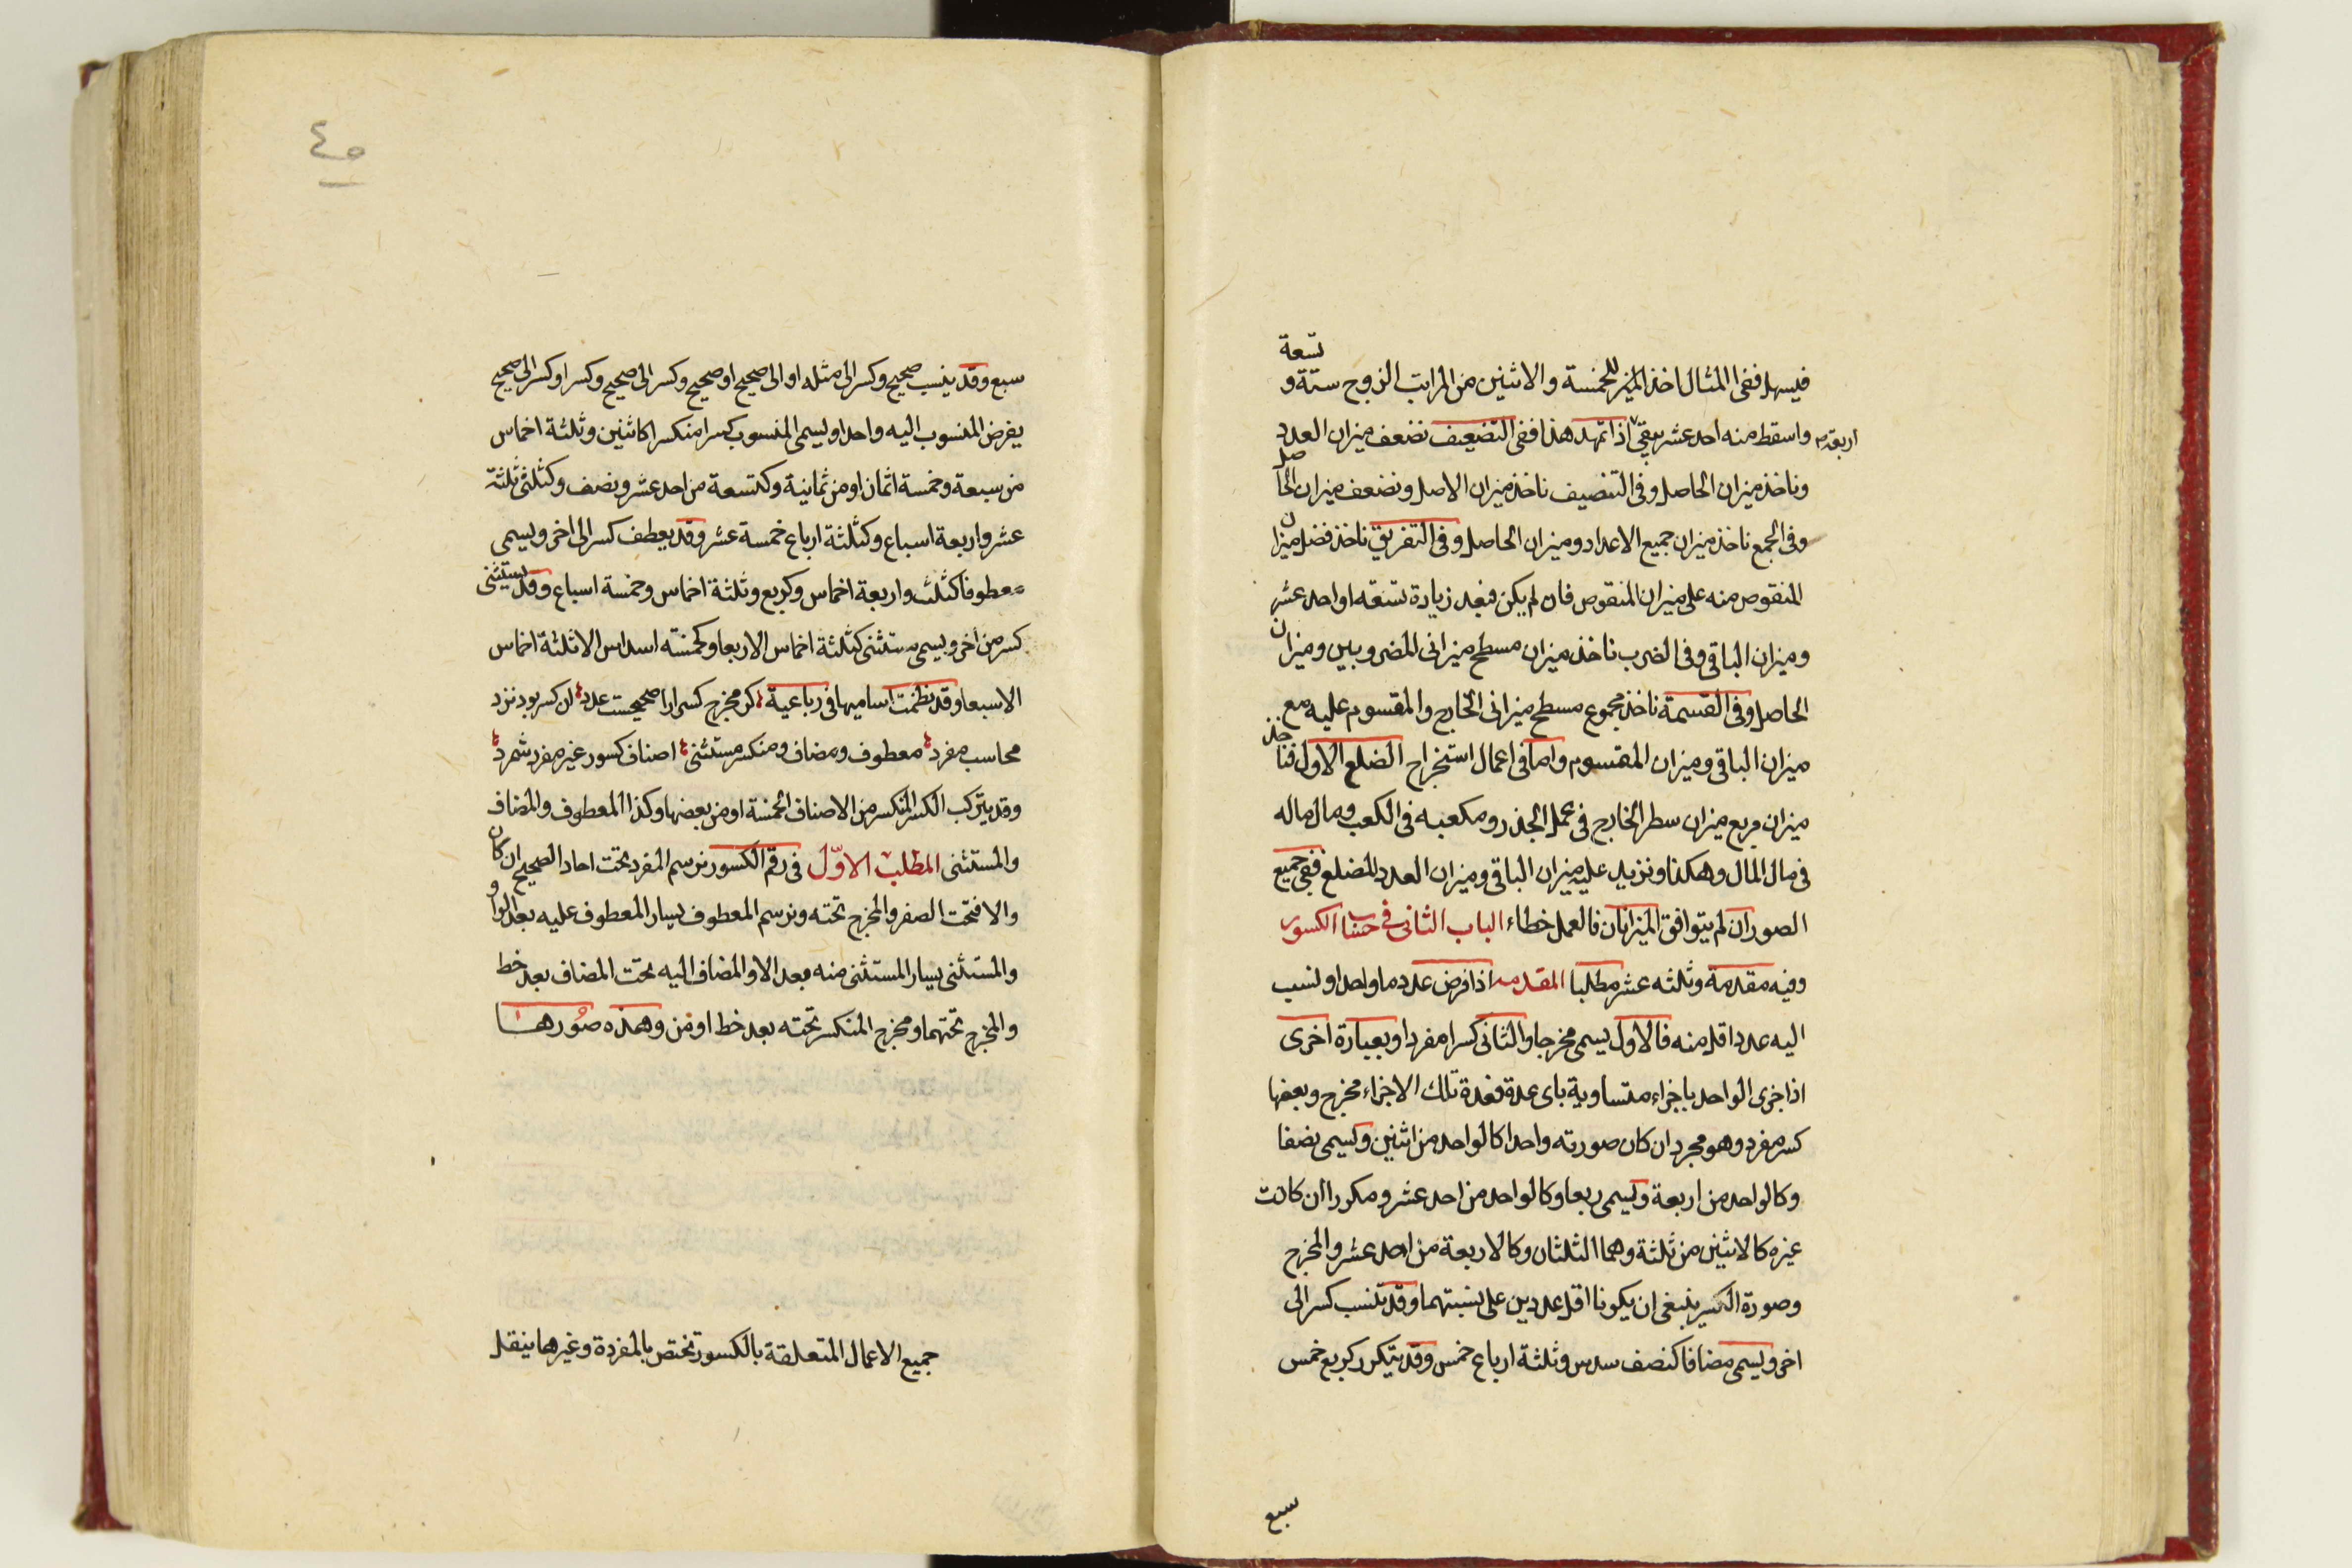 تسعة
فيسهل ففى المثال اخذ الميز للخمسة والاثنين من المراتب الزوج ستة و
اربعة م واسقط منه احد عشر يبقى ٧ اذا تمهد هذا ففى التضعيف نضعف ميزان العدد
وناخذ ميزان الحاصل وفى التنصيف ناخذ ميزان الاصل ونضعف ميزان الحاصل
وفى الجمع ناخذ ميزان جميع الاعداد وميزان الحاصل وفى التفريق ناخذ فضل ميزان
المنقوص منه على ميزان المنقوص فان لم يكن فبعد زيادة تسعه او احد عشر
وميزان الباقى وفى الضرب ناخذ ميزان مسطح ميزانى المضروبين وميزان
الحاصل وفى القسمة ناخذ مجموع مسطح ميزانى الخارج والمقسوم عليه مع
ميزان الباقى وميزان المقسوم واما فى اعمال استخراج الضلع الاول فناخذ
ميزان مربع ميزان سطر الخارج فى عمل الجذر ومكعبه فى الكعب ومال ماله
فى مال المال وهكذا ونزيد عليه ميزان الباقى وميزان العدد المضلع ففى جميع
الصور ان لم يتوافق الميزانان فالعمل خطاء الباب الثانى فى حساب الكسور
وفيه مقدمة وثلثه عشر مطلبا المقدمه اذا فرض عدد ما واحدا ونسب
اليه عدد اقل منه فالاول يسمى مخرجا والثانى كسرا مفردا وبعبارة اخرى
اذا جزى الواحد باجزاء متساوية باى عدة فعدة تلك الاجزاء مخرج وبعضها
كسر مفرد وهو مجرد ان كان صورته واحدا كالواحد من اثنين ويسمى نصفا
وكالواحد من اربعة ويسمى ربعا وكالواحد من احد عشر ومكررا ان كانت
غيره كالاثنين من ثلثة وهما الثلثان وكالاربعة من احد عشر والمخرج
وصورة الكسر ينبغى ان يكونا اقل عددين على نسبتهما وقد تنسب كسر الى
اخر ويسمى مضافا كنصف سدس وثلثة ارباع خمس وقد يتكرر كربع خمس
سبع
٤٥
سبع وقد ينسب صحيح وكسر الى مثله او الى صحيح او صحيح وكسر الى صحيح وكسر او كسر الى صحيح
يفرض المنسوب اليه واحدا ويسمى المنسوب كسرا منكسرا كاثنين وثلثة اخماس
من سبعة وخمسة اثمان او من ثمانية وكتسعة من احد عشر ونصف وكثلثى ثلثة
عشر واربعة اسباع وكثلثة ارباع خمسة عشر وقد يعطف كسر الى اخر ويسمى
معطوفا كثلث واربعة اخماس وكربع وثلثة اخماس وخمسة اسباع وقد يستثنى
كسر من اخر ويسمى مستثنى كثلثة اخماس الا ربعا وكخمسته اسداس الا ثلثة اخماس
الا سبعا وقد نظمت اساميها فى رباعية كر مخرج كسرارا صحيحست عدد ان كسر بود نزد
محاسب مفرد معطوف ومضاف ومنكسر مستثنى اصناف كسور غير مفرد شمرد
وقد يتركب الكسر المنكسر من الاصناف الخمسة او من بعضها وكذا المعطوف والمضاف
والمستثنى المطلب الاوّل فى رقم الكسور نرسم المفرد تحت احاد الصحيح ان كان
والا فتحت الصفر والمخرج تحته ونرسم المعطوف يسار المعطوف عليه بعد الواو
والمستثنى يسار المستثنى منه بعد الا والمضاف اليه تحت المضاف بعد خط
والمخرج تحتهما ومخرج المنكسر تحته بعد خط او من وهذه صورها
جميع الاعمال المتعلقة بالكسور تختص بالمفردة وغيرها ينقل